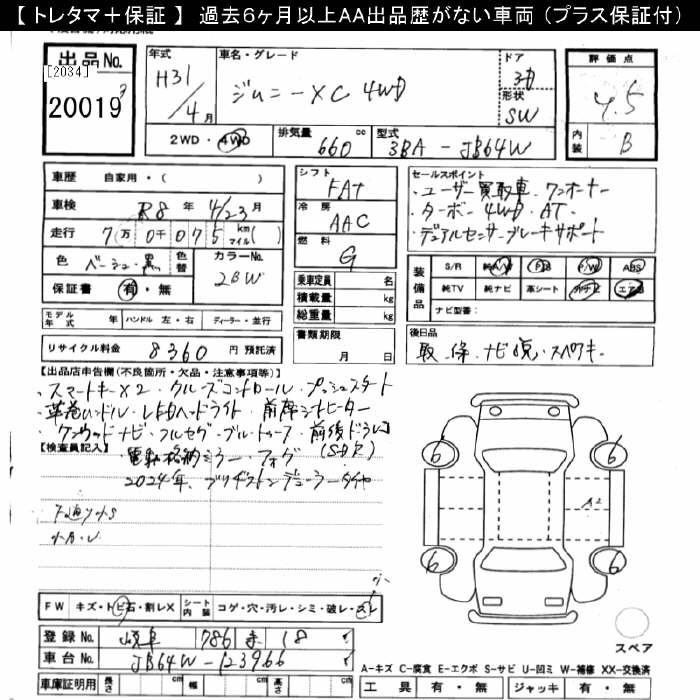 【 トレタマ＋保証 】 過去6ヶ月以上AA出品歴がない車両（プラス保証付）
出品No.
[2034]
20019
年式 H31 / 4 月
車名・グレード ジムニー XC 4WD
ドア 3D
形状 SW
評価点 4.5
内装 B
2WD・4WD 排気量 660 cc 型式 3BA - JB64W
車歴 自家用・( )
車検 R8 年 4/23 月
走行 7 万 0 千 0 7 5 km マイル ( )
色 ベージュ・黒 色替 カラーNo. 2BW
保証書 有・無
モデル年式 年 ハンドル 左・右 ディーラー・並行
リサイクル料金 8360 円 預託済
シフト FAT
冷房 AAC
燃料 G
乗車定員 名
積載量 kg
総重量 kg
書類期限 月 日
セールスポイント
・ユーザー買取車・ワンオーナー
・ターボ・4WD・AT
・デュアルセンサーブレーキサポート
装備品 S/R 純A/W P/S P/W ABS
純TV 純ナビ 革シート エアB
ナビ型番:
後日品
取、保、ナビ説、スペアキー
【出品店申告欄(不良箇所・欠品・注意事項等)】
・スマートキー×2・クルーズコントロール・プッシュスタート
・革巻ハンドル・LEDヘッドライト・前席シートヒーター
・ケンウッドナビ・フルセグ・ブルートゥース・前後ドラレコ
・電動格納ミラー・フォグ
2024年、ブリヂストンデューラータイヤ
【検査員記入】
6 6
6 6
A2
FW キズ・トビ石・割レX シート内装 コゲ・穴・汚レ・シミ・破レ・スレ
登録No. 岐阜 786 18
車台No. JB64W-123966
車庫証明用 長さ cm 幅 cm 高さ cm
スペア
A-キズ C-腐食 E-エクボ S-サビ U-凹ミ W-補修 XX-交換済
工具 有・無 ジャッキ 有・無